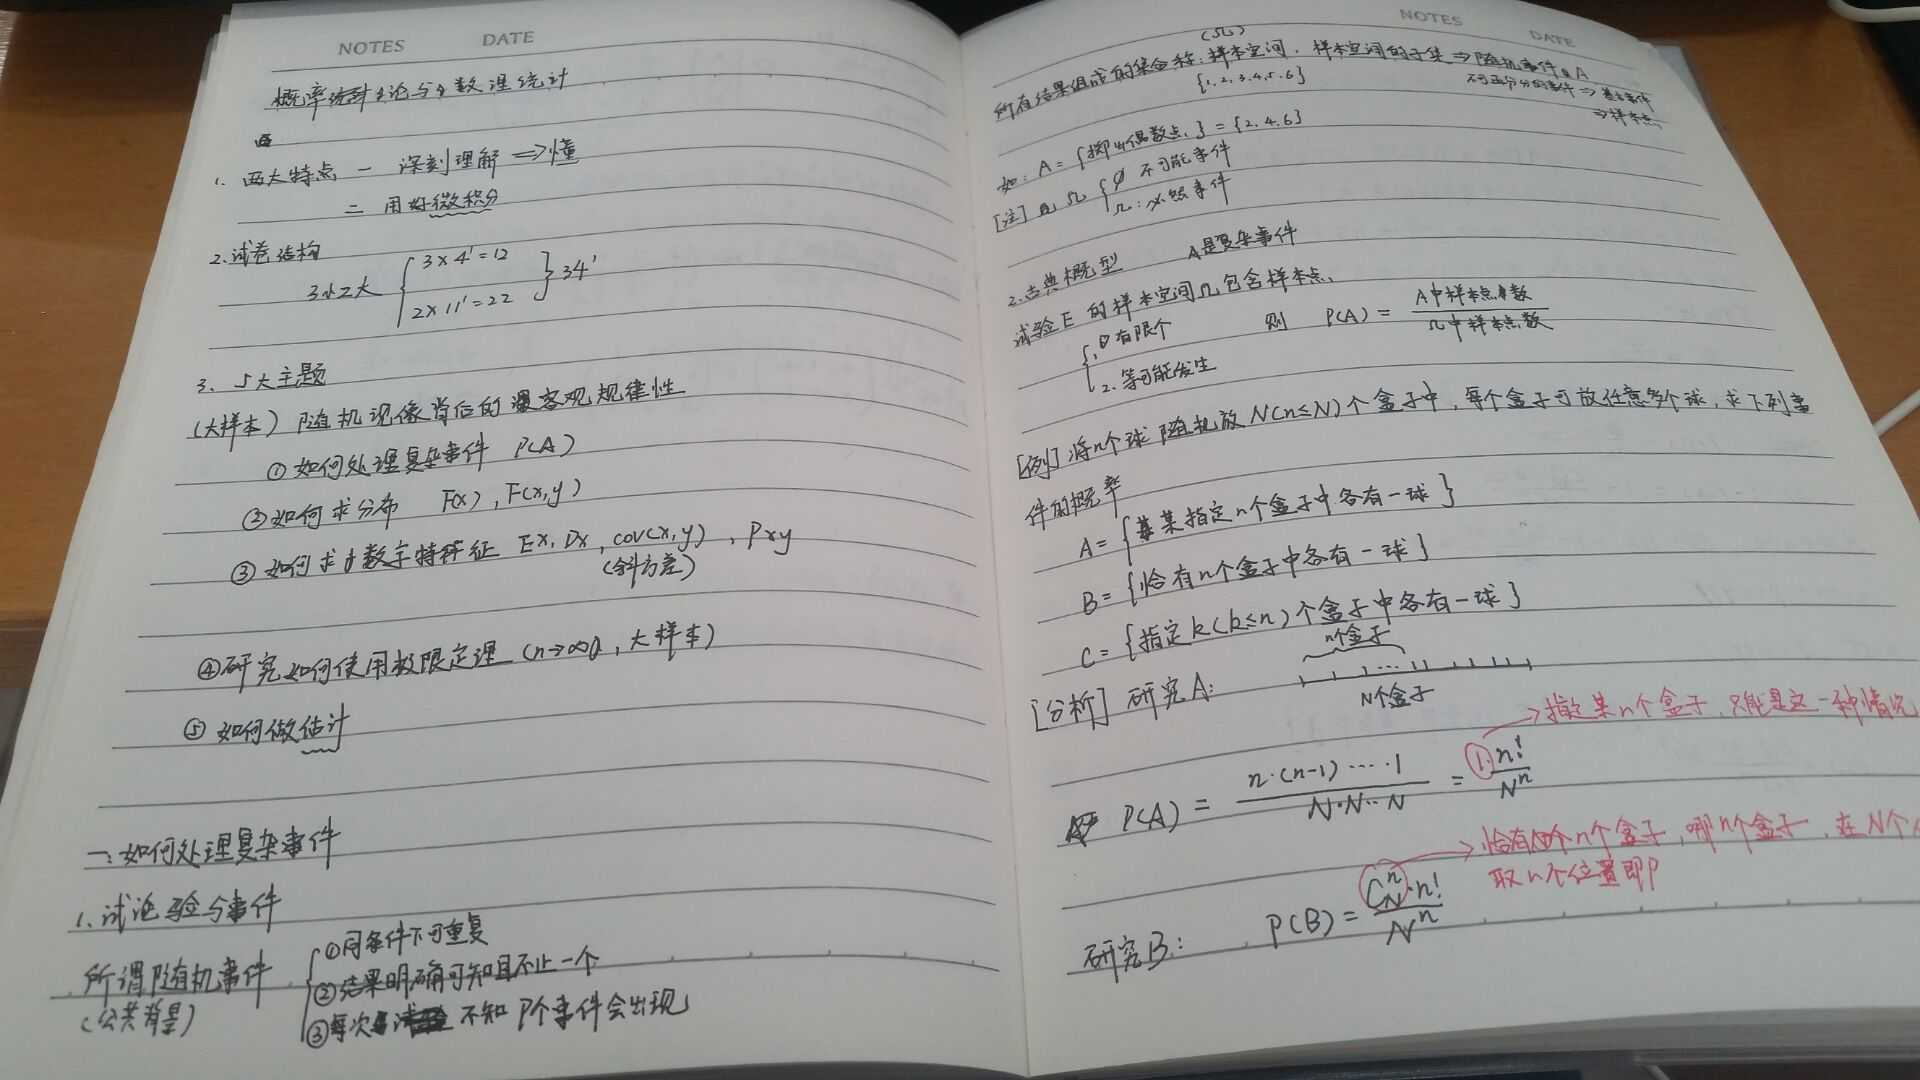 NOTES DATE
概率论与数理统计
1. 两大特点 一 深刻理解 ⟹懂
二 用好微积分
2.试卷结构
3小2大 { 3×4'=12
2×11'=22 } 34'
3. 5大主题
(大样本) 随机现像背后的客观规律性
① 如何处理复杂事件 P(A)
② 如何求分布 F(x), F(x,y)
③ 如何求数字特征 Ex, Dx, cov(x,y), ρxy
④研究如何使用极限定理 (n→∞, 大样本)
⑤ 如何做估计
一:如何处理复杂事件
1.试验与事件
所谓随机事件
(公共背景)
①同条件下可重复
②结果明确可知且不止一个
③每次试验 不知 P个事件会出现
NOTES DATE
(Ω)
所有结果组成的集合称:样本空间. 样本空间的子集 ⟹随机事件 A
{1,2,3,4,5,6}
不可再分的事件 ⟹ 基本事件
⟹样本点
如: A = {掷出偶数点} = {2,4,6}
[注] Ω { ∅ 不可能事件
Ω:必然事件
2.古典概型 A是复杂事件
试验E 的样本空间Ω包含样本点
1.有限个
2.等可能发生
则 P(A) = A中样本点个数 / Ω中样本点数
[例]将n个球随机放N(n≤N)个盒子中,每个盒子可放任意多个球,求下列事
件的概率
A= {某指定n个盒子中各有一球}
B= {恰有n个盒子中各有一球}
C= {指定k(k≤n)个盒子中各有一球}
[分析] 研究A:
n个盒子
N个盒子
→指定某n个盒子,只能是这一种情况
P(A) = n·(n-1)····1 / N·N··N = 1·n! / Nⁿ
→恰有n个盒子,哪n个盒子,在N个
取n个位置即P
研究B: P(B) = C_N^n·n! / Nⁿ